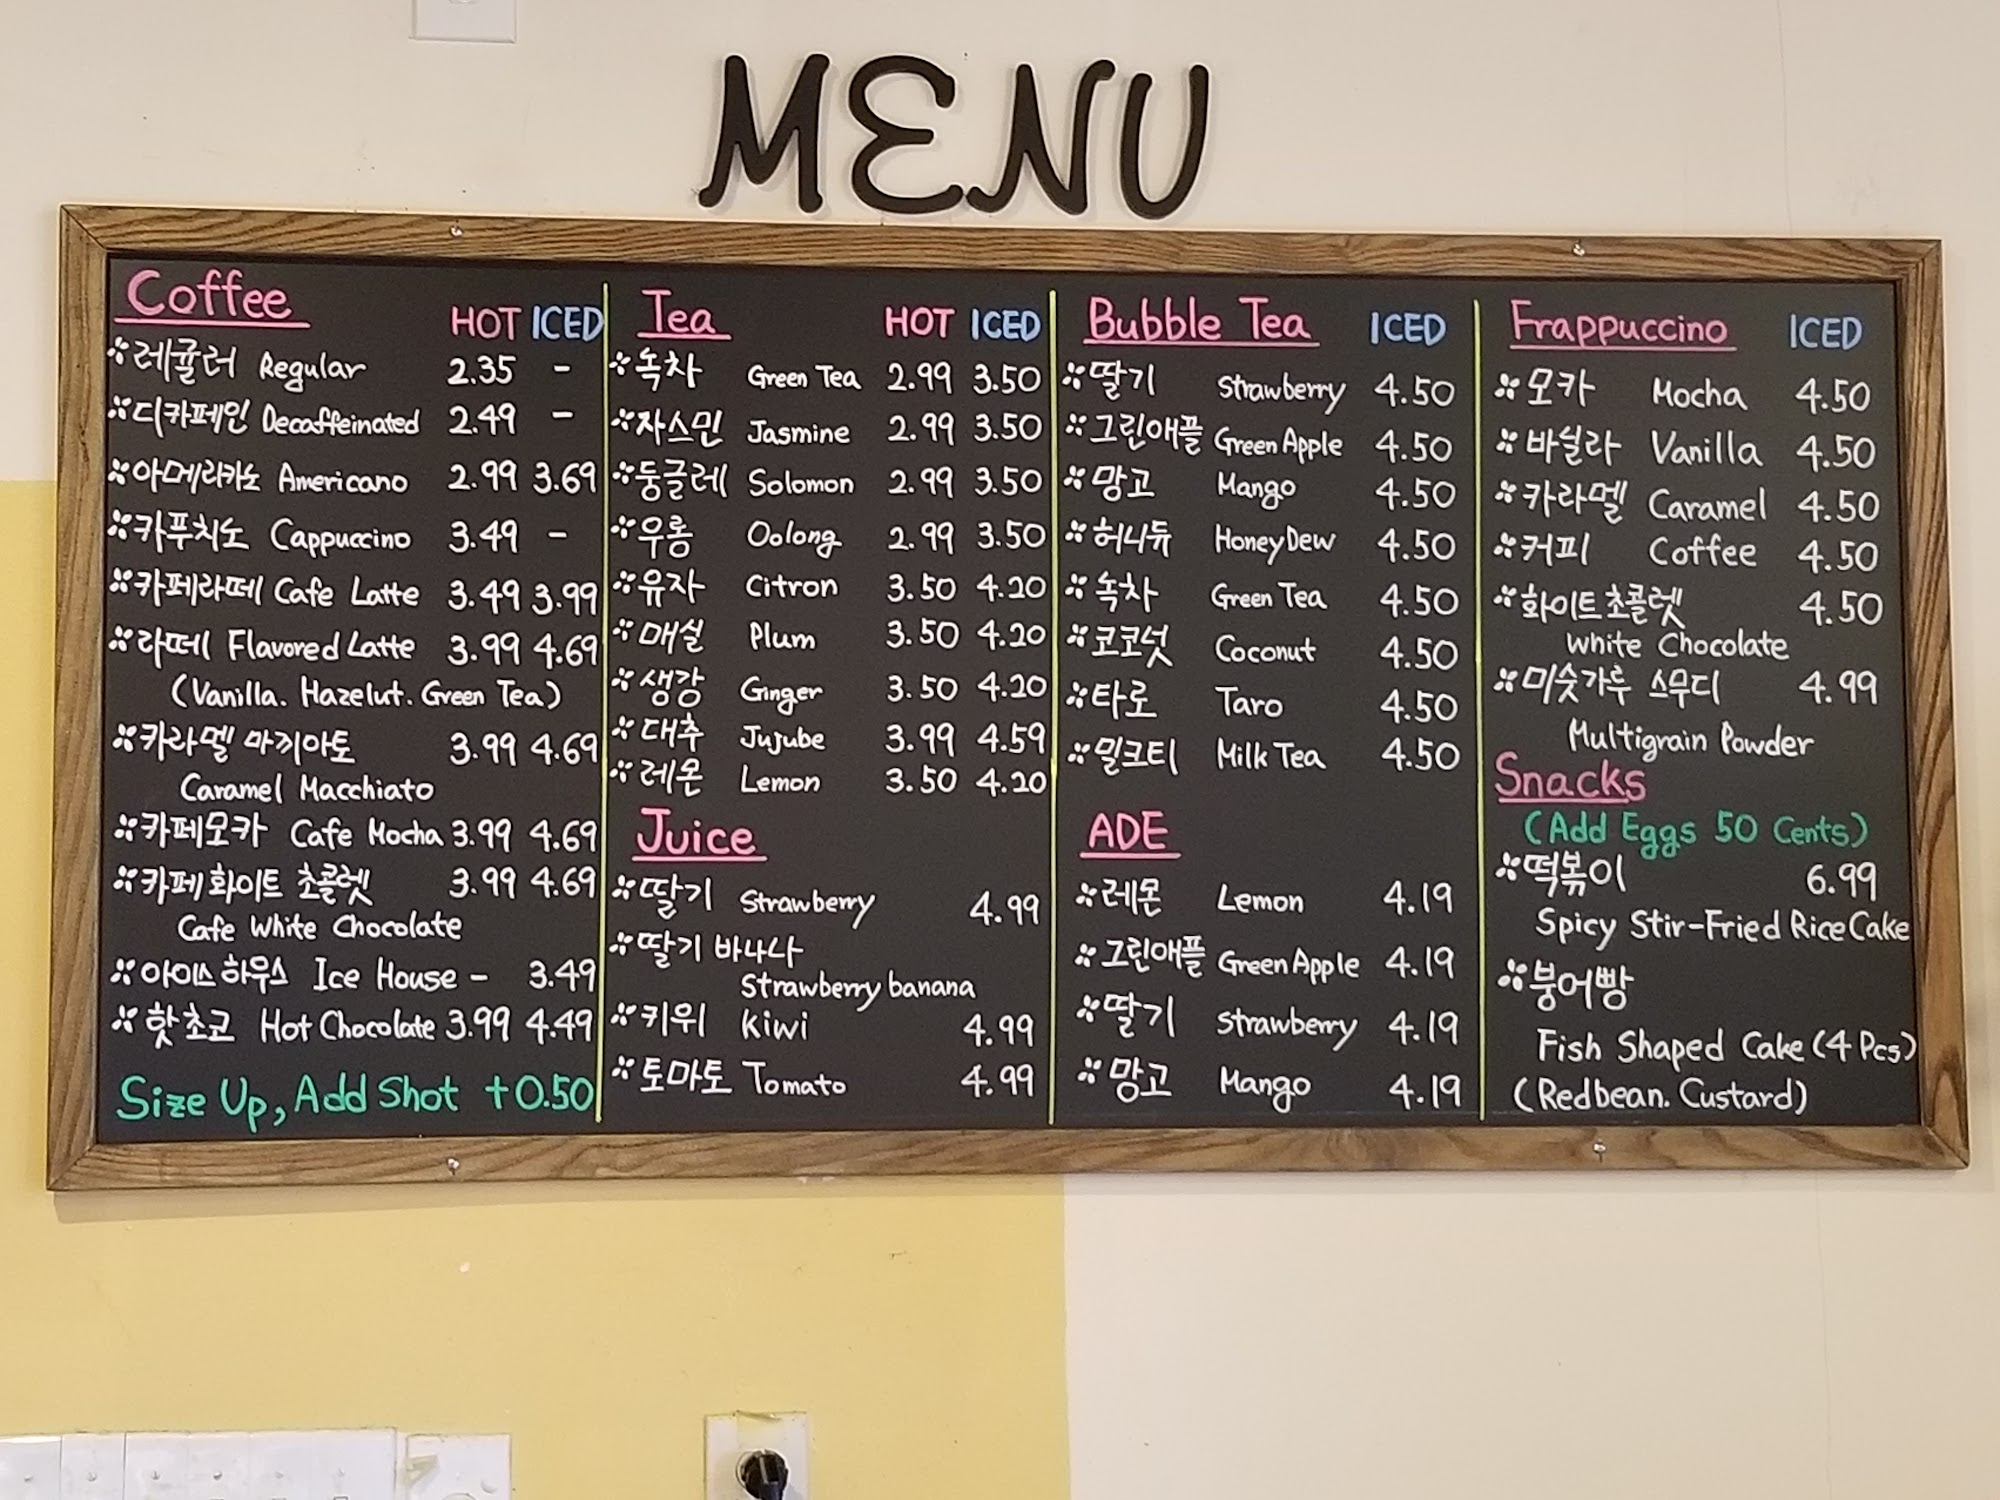 MENU
Coffee HOT ICED
레귤러 Regular 2.35 -
디카페인 Decaffeinated 2.49 -
아메리카노 Americano 2.99 3.69
카푸치노 Cappuccino 3.49 -
카페라떼 Cafe Latte 3.49 3.99
라떼 Flavored Latte 3.99 4.69
(Vanilla. Hazelut. Green Tea)
카라멜 마끼아토 3.99 4.69
Caramel Macchiato
카페모카 Cafe Mocha 3.99 4.69
카페 화이트 초콜렛 3.99 4.69
Cafe White Chocolate
아이스하우스 Ice House - 3.49
핫초코 Hot Chocolate 3.99 4.49
Size Up, Add Shot +0.50
Tea HOT ICED
녹차 Green Tea 2.99 3.50
자스민 Jasmine 2.99 3.50
둥글레 Solomon 2.99 3.50
우롱 Oolong 2.99 3.50
유자 Citron 3.50 4.20
매실 Plum 3.50 4.20
생강 Ginger 3.50 4.20
대추 Jujube 3.99 4.59
레몬 Lemon 3.50 4.20
Juice
딸기 Strawberry 4.99
딸기 바나나
Strawberry banana
키위 Kiwi 4.99
토마토 Tomato 4.99
Bubble Tea ICED
딸기 Strawberry 4.50
그린애플 Green Apple 4.50
망고 Mango 4.50
허니듀 HoneyDew 4.50
녹차 Green Tea 4.50
코코넛 Coconut 4.50
타로 Taro 4.50
밀크티 Milk Tea 4.50
ADE
레몬 Lemon 4.19
그린애플 Green Apple 4.19
딸기 Strawberry 4.19
망고 Mango 4.19
Frappuccino ICED
모카 Mocha 4.50
바닐라 Vanilla 4.50
카라멜 Caramel 4.50
커피 Coffee 4.50
화이트초콜렛 4.50
White Chocolate
미숫가루 스무디 4.99
Multigrain Powder
Snacks
(Add Eggs 50 Cents)
떡볶이 6.99
Spicy Stir-Fried Rice Cake
붕어빵
Fish Shaped Cake (4 Pcs)
(Redbean. Custard)